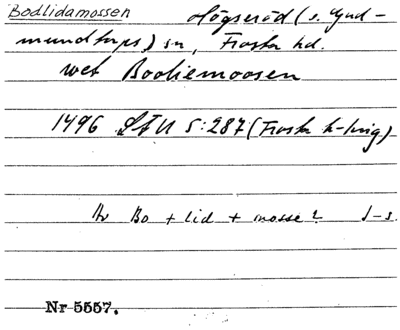 Bodlidamossen Högseröd (s. Gud-
mundtorps) sn, Frosta hd.
wet Bodiemoosen
1496 LÄU 5:287 (Frosta h-ting)
Av Bo + lid + mosse? J-s.
Nr 5557.